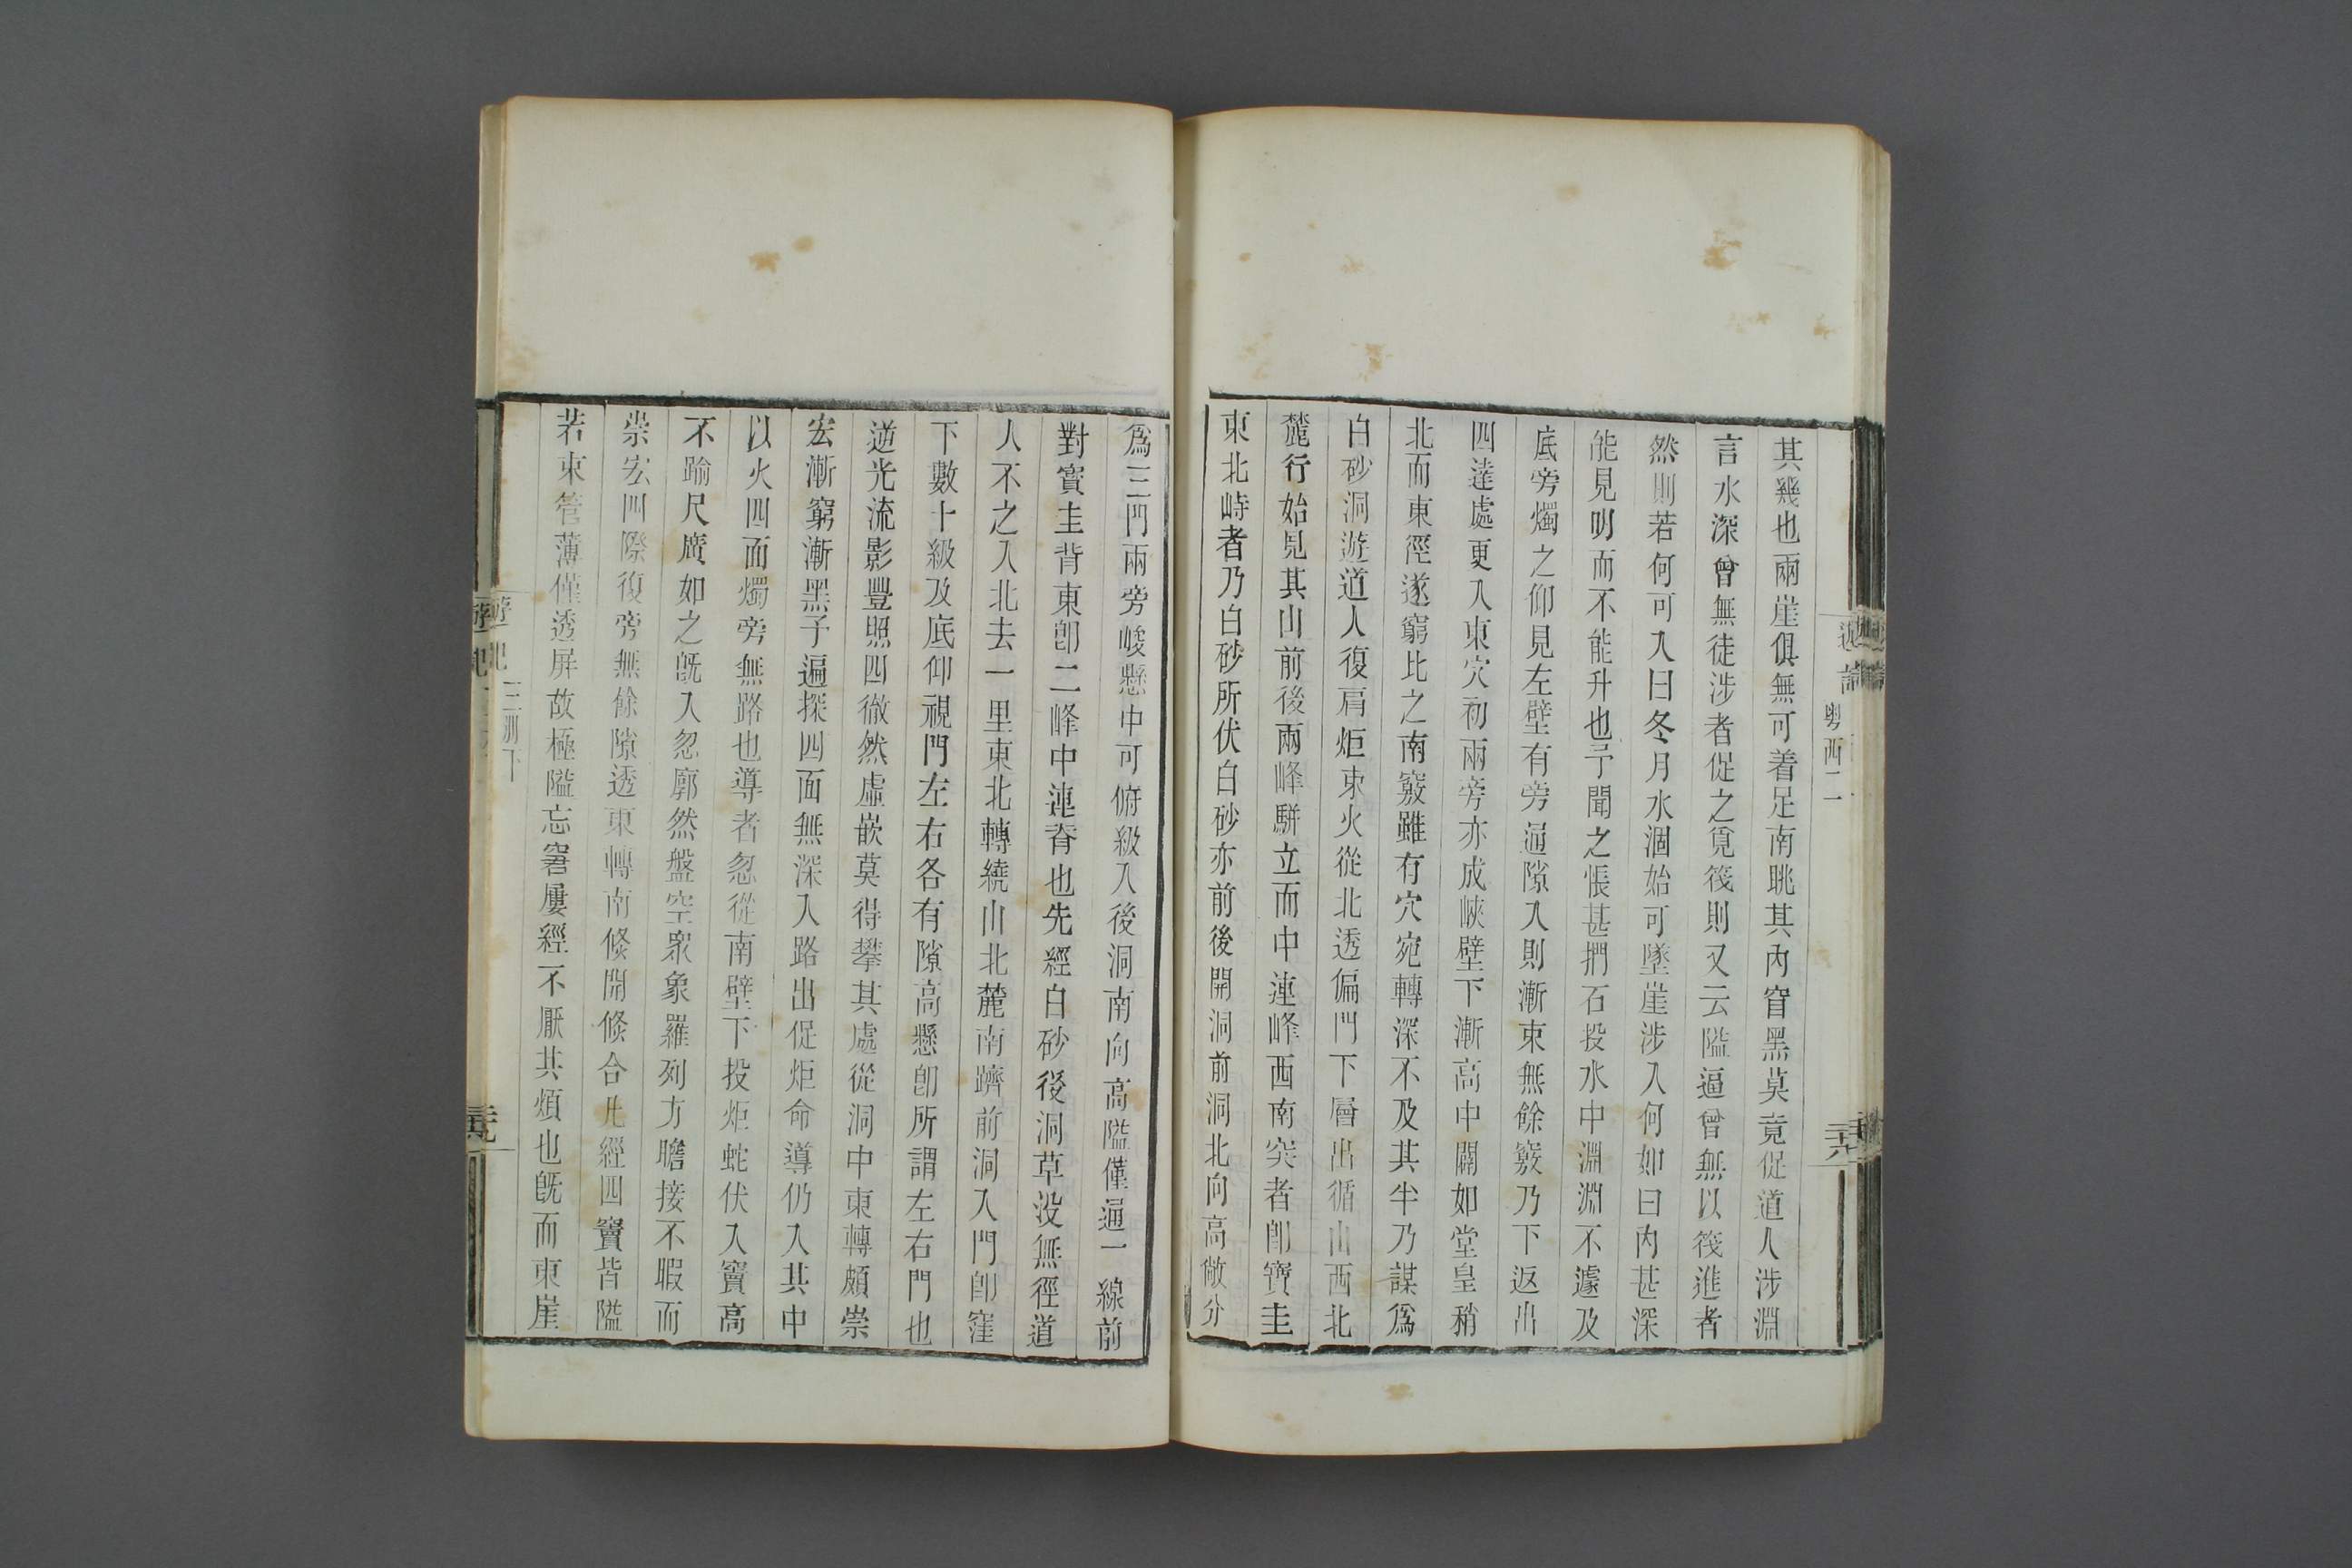 其幾也兩崖俱無可着足南眺其內窅黑莫竟促道人涉淵
言水深曾無徒涉者促之覓筏則又云隘逼曾無以筏進者
然則若何可入曰冬月水涸始可墜崖涉入何如曰內甚深
能見明而不能升也予聞之悵甚捫石投水中淵淵不遽及
底旁燭之仰見左壁有旁通隙入則漸束無餘竅乃下返出
四達處更入東穴初兩旁亦成峽壁下漸高中闢如堂皇稍
北而東徑遂窮比之南竅雖有穴宛轉深不及其半乃謀爲
白砂洞遊道人復肩炬束火從北透偏門下層出循山西北
麓行始見其山前後兩峰駢立而中連峰西南突者卽寶圭
東北峙者乃白砂所伏白砂亦前後開洞前洞北向高敞分
爲三門兩旁峻懸中可俯級入後洞南向高隘僅通一線前
對寶圭背東卽二峰中連脊也先經白砂後洞草没無徑道
人不之入北去一里東北轉繞山北麓南躋前洞入門卽窪
下數十級及底仰視門左右各有隙高懸卽所謂左右門也
逆光流影豐照四徹然虛嵌莫得攀其處從洞中東轉頗崇
宏漸窮漸黑予遍探四面無深入路出促炬命導仍入其中
以火四面燭旁無路也導者忽從南壁下投炬蛇伏入竇高
不踰尺廣如之旣入忽廓然盤空衆象羅列方瞻接不暇而
崇宏四際復旁無餘隙透東轉南倐開倐合凡經四竇皆隘
若束管薄僅透屏故極隘忘窘屢經不厭其煩也旣而東崖
遊記
粤西二
三六
遊記
三洲下
三七